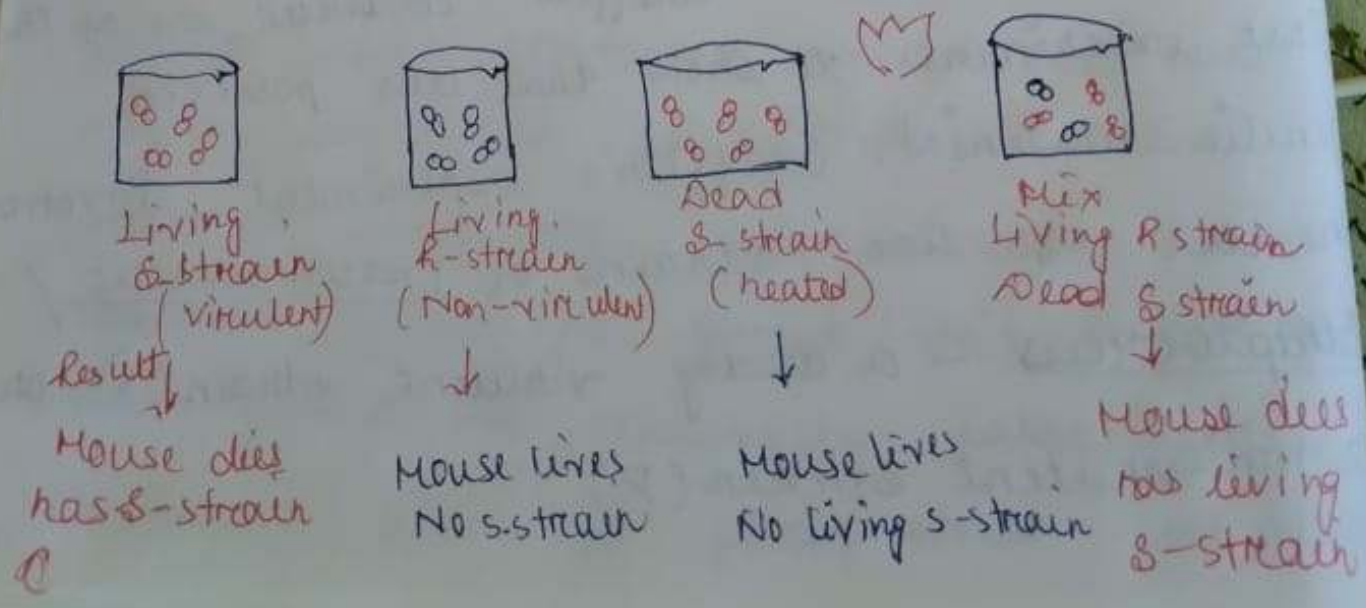 Living
S-strain
(virulent)
Result
Mouse dies
has S-strain
Living
R-strain
(Non-virulent)
Mouse lives
No s.strain
Dead
S-strain
(heated)
Mouse lives
No living s-strain
Mix
Living R strain
Dead S strain
Mouse dies
has living
S-strain